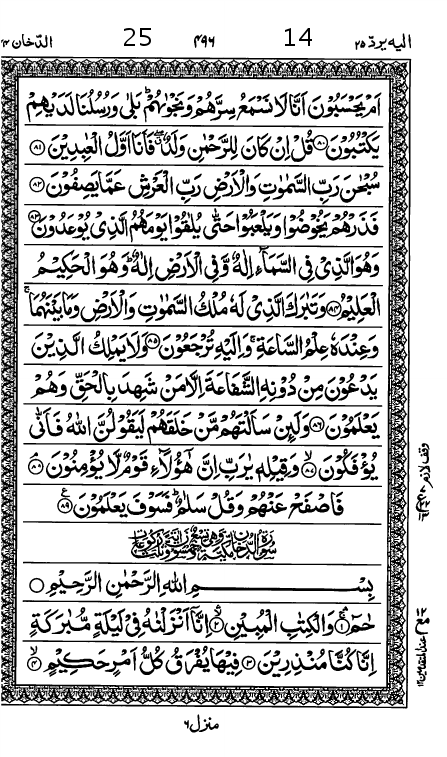 الدّخان ٤٤ 25 ٤٩٦ 14 اليه يردّ ٢٥
اَمْ يَحْسَبُوْنَ اَنَّا لَا نَسْمَعُ سِرَّهُمْ وَنَجْوٰىهُمْ ؕ بَلٰى وَرُسُلُنَا لَدَيْهِمْ
يَكْتُبُوْنَ ۝۸۰ قُلْ اِنْ كَانَ لِلرَّحْمٰنِ وَلَدٌ ۖۗ فَاَنَا اَوَّلُ الْعٰبِدِيْنَ ۝۸۱
سُبْحٰنَ رَبِّ السَّمٰوٰتِ وَالْاَرْضِ رَبِّ الْعَرْشِ عَمَّا يَصِفُوْنَ ۝۸۲
فَذَرْهُمْ يَخُوْضُوْا وَيَلْعَبُوْا حَتّٰى يُلٰقُوْا يَوْمَهُمُ الَّذِىْ يُوْعَدُوْنَ ۝۸۳
وَهُوَ الَّذِىْ فِى السَّمَآءِ اِلٰهٌ وَّفِى الْاَرْضِ اِلٰهٌ ؕ وَهُوَ الْحَكِيْمُ
الْعَلِيْمُ ۝۸۴ وَتَبٰرَكَ الَّذِىْ لَهٗ مُلْكُ السَّمٰوٰتِ وَالْاَرْضِ وَمَا بَيْنَهُمَا ۚ
وَعِنْدَهٗ عِلْمُ السَّاعَةِ ۚ وَاِلَيْهِ تُرْجَعُوْنَ ۝۸۵ وَلَا يَمْلِكُ الَّذِيْنَ
يَدْعُوْنَ مِنْ دُوْنِهِ الشَّفَاعَةَ اِلَّا مَنْ شَهِدَ بِالْحَقِّ وَهُمْ
يَعْلَمُوْنَ ۝۸۶ وَلَئِنْ سَاَلْتَهُمْ مَّنْ خَلَقَهُمْ لَيَقُوْلُنَّ اللّٰهُ فَاَنّٰى
يُؤْفَكُوْنَ ۝۸۷ وَقِيْلِهٖ يٰرَبِّ اِنَّ هٰٓؤُلَآءِ قَوْمٌ لَّا يُؤْمِنُوْنَ ۝۸۸
فَاصْفَحْ عَنْهُمْ وَقُلْ سَلٰمٌ ؕ فَسَوْفَ يَعْلَمُوْنَ ۝۸۹
بِسْمِ اللّٰهِ الرَّحْمٰنِ الرَّحِيْمِ ۝
حٰمٓ ۝۱ وَالْكِتٰبِ الْمُبِيْنِ ۝۲ اِنَّاۤ اَنْزَلْنٰهُ فِىْ لَيْلَةٍ مُّبٰرَكَةٍ
اِنَّا كُنَّا مُنْذِرِيْنَ ۝۳ فِيْهَا يُفْرَقُ كُلُّ اَمْرٍ حَكِيْمٍ ۝۴
وقف لازم
منزل ٦